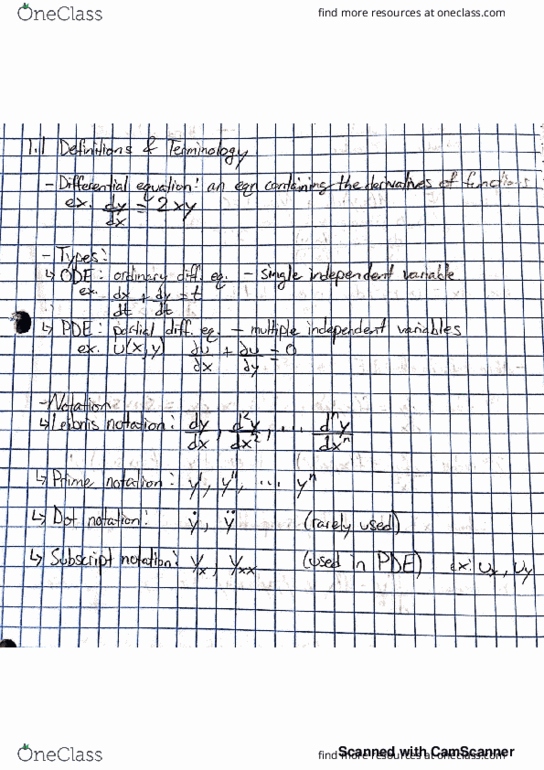 OneClass
find more resources at oneclass.com
1.1 Definitions & Terminology
- Differential equation: an eqn containing the derivatives of functions
ex. dy/dx = 2xy
- Types:
↳ ODE: ordinary diff. eq. - single independent variable
ex. dx/dt + dy/dt = t
↳ PDE: partial diff. eq. - multiple independent variables
ex. u(x,y) du/dx + du/dy = 0
- Notation
↳ Leibnis notation: dy/dx, d²y/dx², ... dⁿy/dxⁿ
↳ Prime notation: y', y'', ... yⁿ
↳ Dot notation: ẏ, ÿ (rarely used)
↳ Subscript notation: yₓ, yₓₓ (used in PDE) ex: uₓ, u_y
OneClass
find more resources at oneclass.com
Scanned with CamScanner